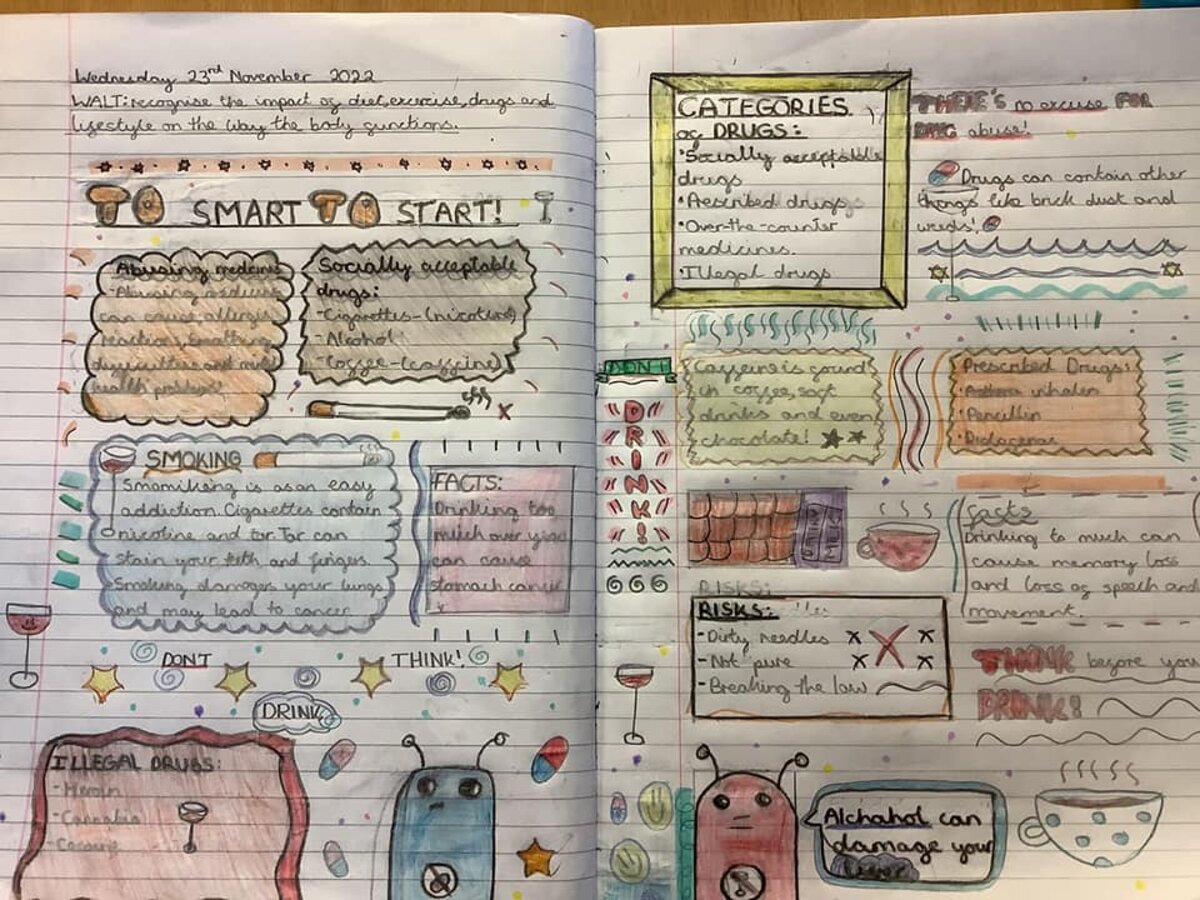 Wednesday 23rd November 2022
WALT: recognise the impact of diet, exercise, drugs and
lifestyle on the way the body functions.
TO SMART TO START!
Abusing medcine
Abusing
can cause allergic
reactions,
health problems!
Socially acceptable
drugs:
-Cigarettes-(nicotine)
-Alcohol
-Coffee-(caffeine)
SMOKING
is as an easy
addiction. Cigarettes contain
nicotine and tar. Tar can
stain your teeth and fingers.
Smoking damages your lungs
and may lead to cancer
FACTS:
Drinking too
much over
can cause
stomach cancer
DONT
THINK!
DRINK
ILLEGAL DRUGS:
-Heroin
-Cannabis
-Cocaine
CATEGORIES
of DRUGS:
•Socially acceptable
drugs
•Prescribed drugs
•Over-the-counter
medicines.
•Illegal drugs
THERE'S no excuse FOR
DRUG abuse!
Drugs can contain other
things like brick dust and
weeds!
DON'T
DRINK!
Caffeine is found
in coffee, soft
drinks and even
chocolate!
Prescribed Drugs:
•Asthma inhaler
•Pencillin
DAIRY
MILK
facts
Drinking to much can
cause memory loss
and loss of speech and
movement.
RISKS:
RISKS:
-Dirty needles
-Not pure
-Breaking the law
THINK before you
DRINK!
Alchahol can
damage your
liver